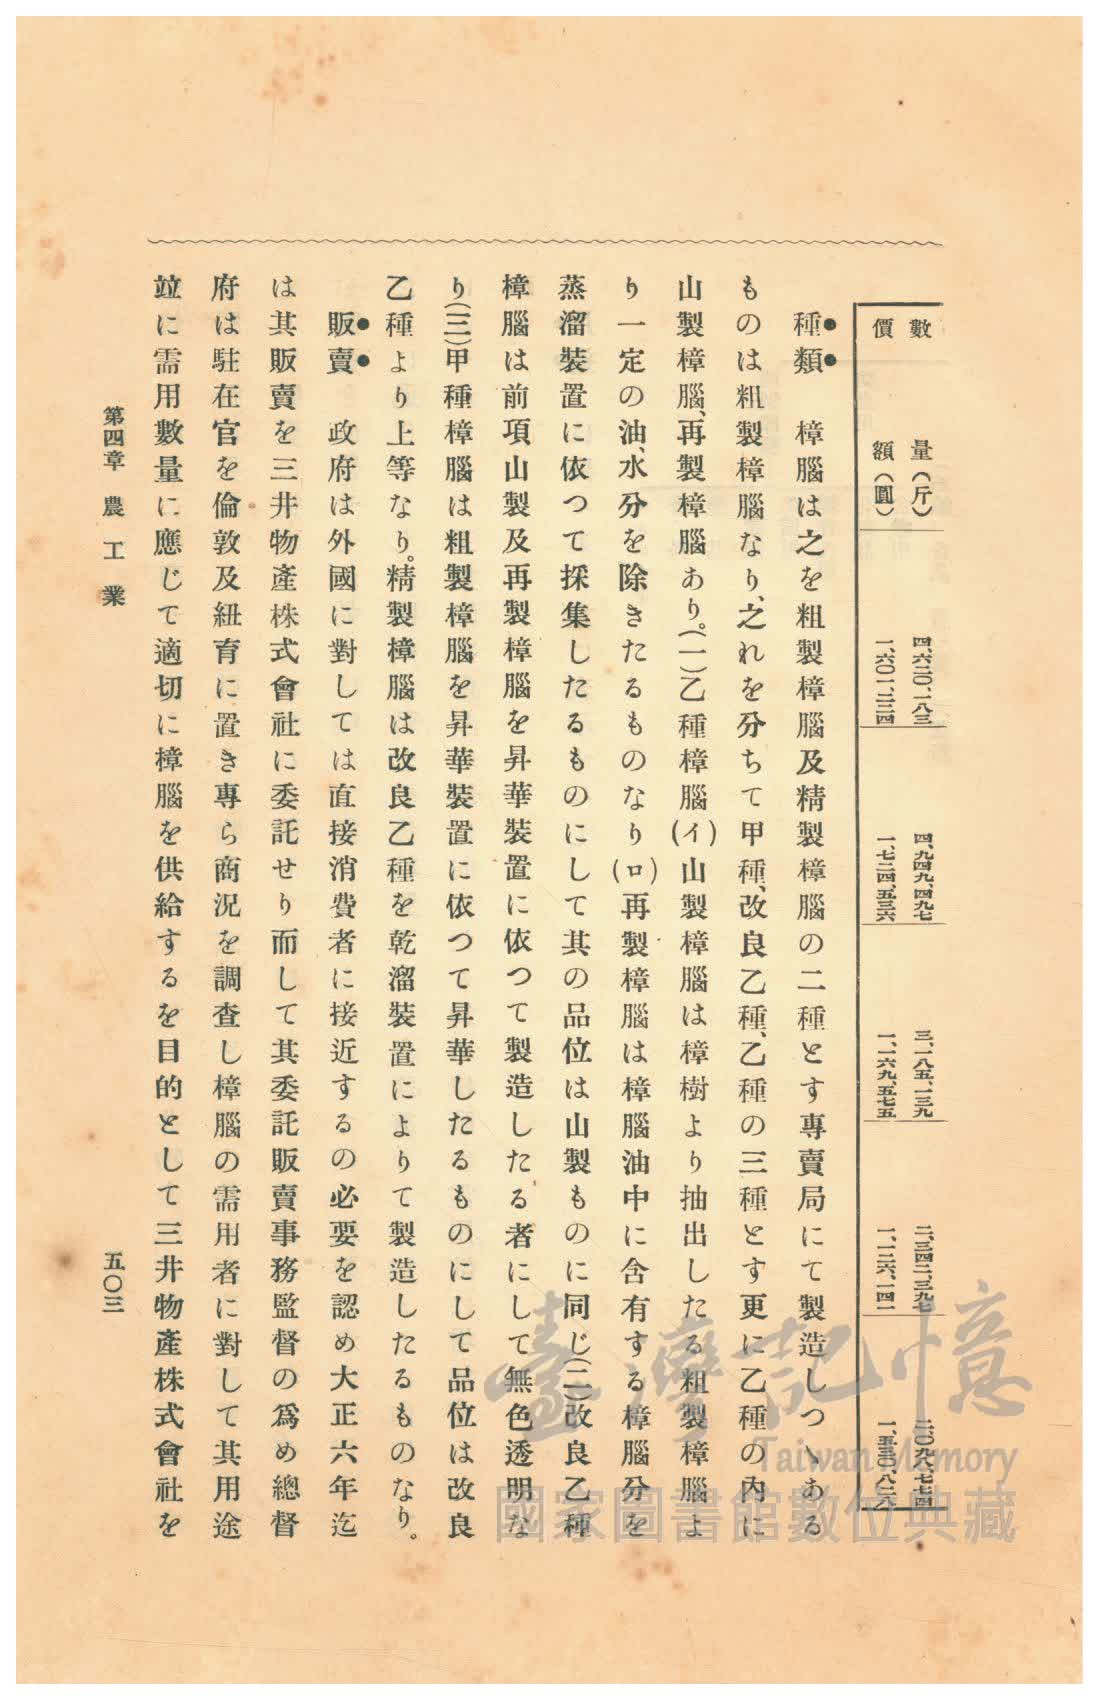 數量(斤) 四、六二〇、一八三 四、九四九、四九七 三、一八五、一三九 二、三四二、三九七 二、〇九八、七七四
價額(圓) 一、六〇一、二三四 一、七二四、五三六 一、一六九、五七五 一、一三六、一四一 一、五三〇、八二六
種類 樟腦は之を粗製樟腦及精製樟腦の二種とす專賣局にて製造しつゝある
ものは粗製樟腦なり、之れを分ちて甲種、改良乙種、乙種の三種とす更に乙種の內に
山製樟腦、再製樟腦あり。(一)乙種樟腦(イ)山製樟腦は樟樹より抽出したる粗製樟腦よ
り一定の油、水分を除きたるものなり(ロ)再製樟腦は樟腦油中に含有する樟腦分を
蒸溜裝置に依つて採集したるものにして其の品位は山製ものに同じ(二)改良乙種
樟腦は前項山製及再製樟腦を昇華裝置に依つて製造したる者にして無色透明な
り(三)甲種樟腦は粗製樟腦を昇華裝置に依つて昇華したるものにして品位は改良
乙種より上等なり。精製樟腦は改良乙種を乾溜裝置によりて製造したるものなり。
販賣 政府は外國に對しては直接消費者に接近するの必要を認め大正六年迄
は其販賣を三井物產株式會社に委託せり而して其委託販賣事務監督の爲め總督
府は駐在官を倫敦及紐育に置き專ら商況を調査し樟腦の需用者に對して其用途
竝に需用數量に應じて適切に樟腦を供給するを目的として三井物產株式會社を
第四章 農工業 五〇三
臺灣記憶
Taiwan Memory
國家圖書館數位典藏